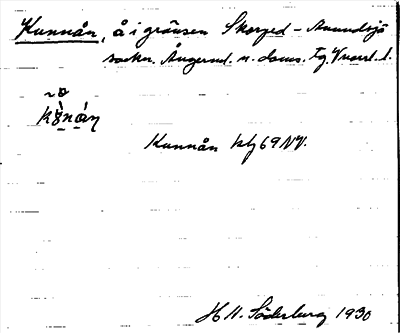 Kunnån, å i gränsen Skorped - Anundsjö
sockn. Ångerml. n. doms. fg. Vnorrl. l.
Kunnån kbl 69 NV.
H N. Söderberg 1930